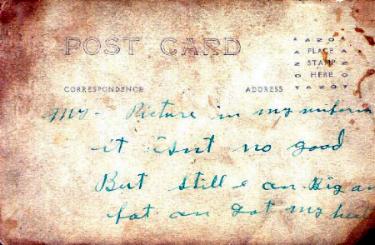 POST CARD
AZO
PLACE
STAMP
HERE
AZO
CORRESPONDENCE
ADDRESS
My - Picture in my uniform
it isnt no good
But still e am Big an
fat an got my